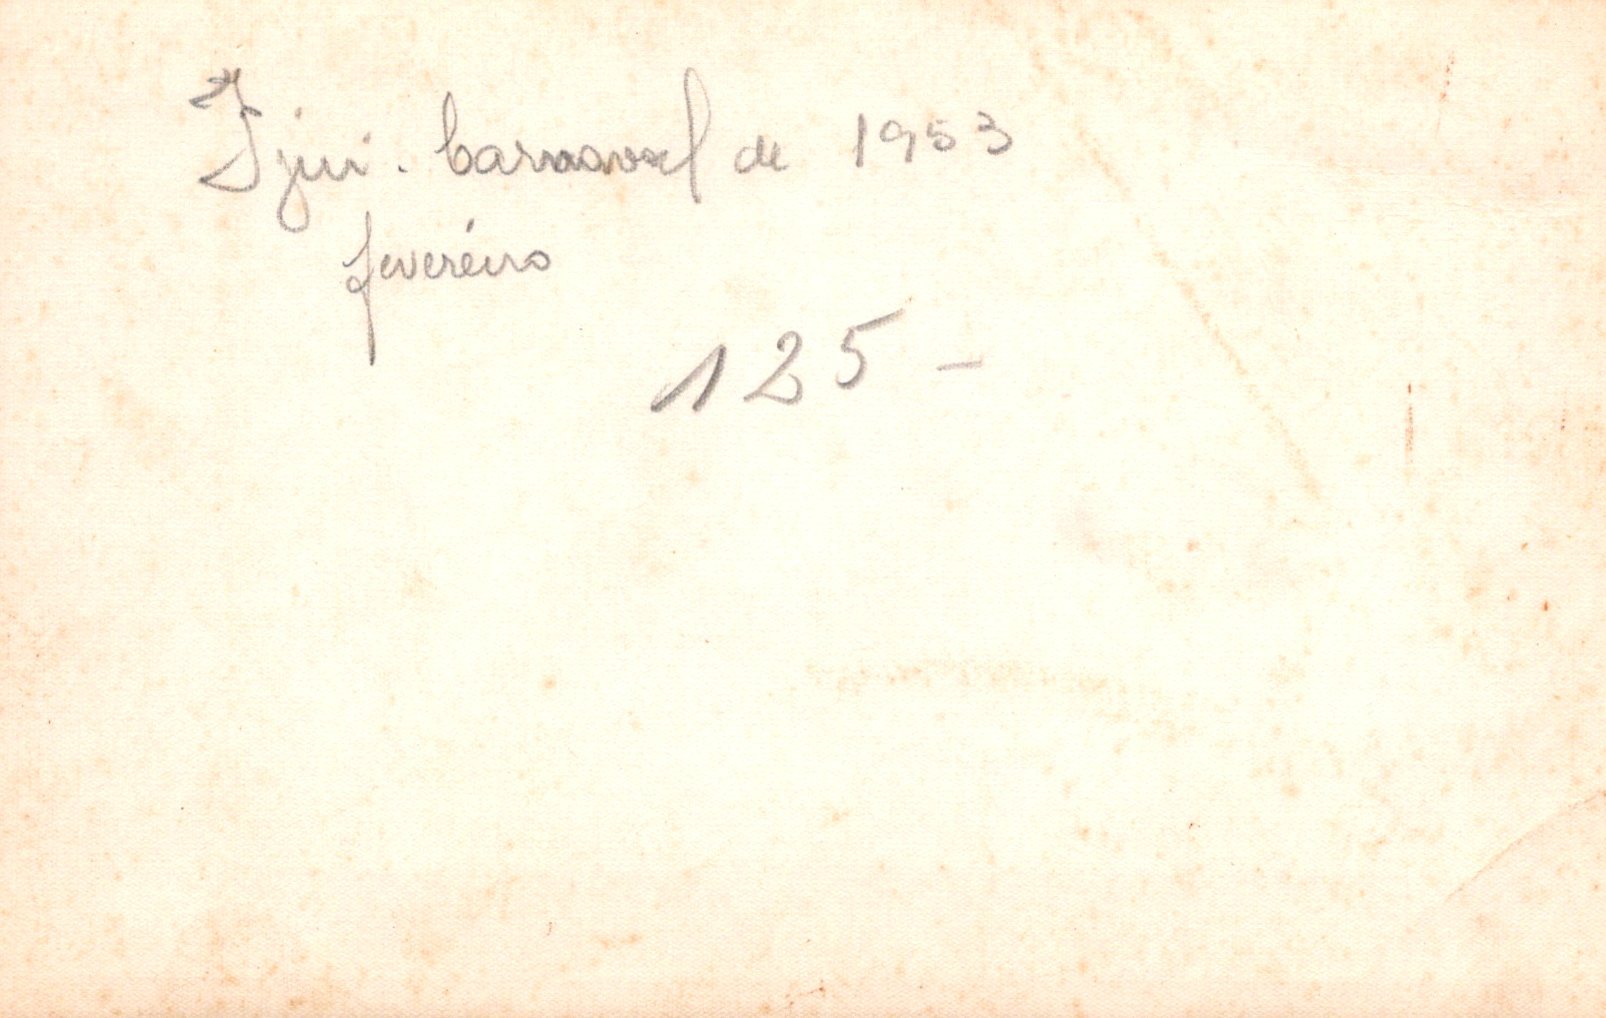 Ijui. Carnaval de 1953
fevereiro
125 -